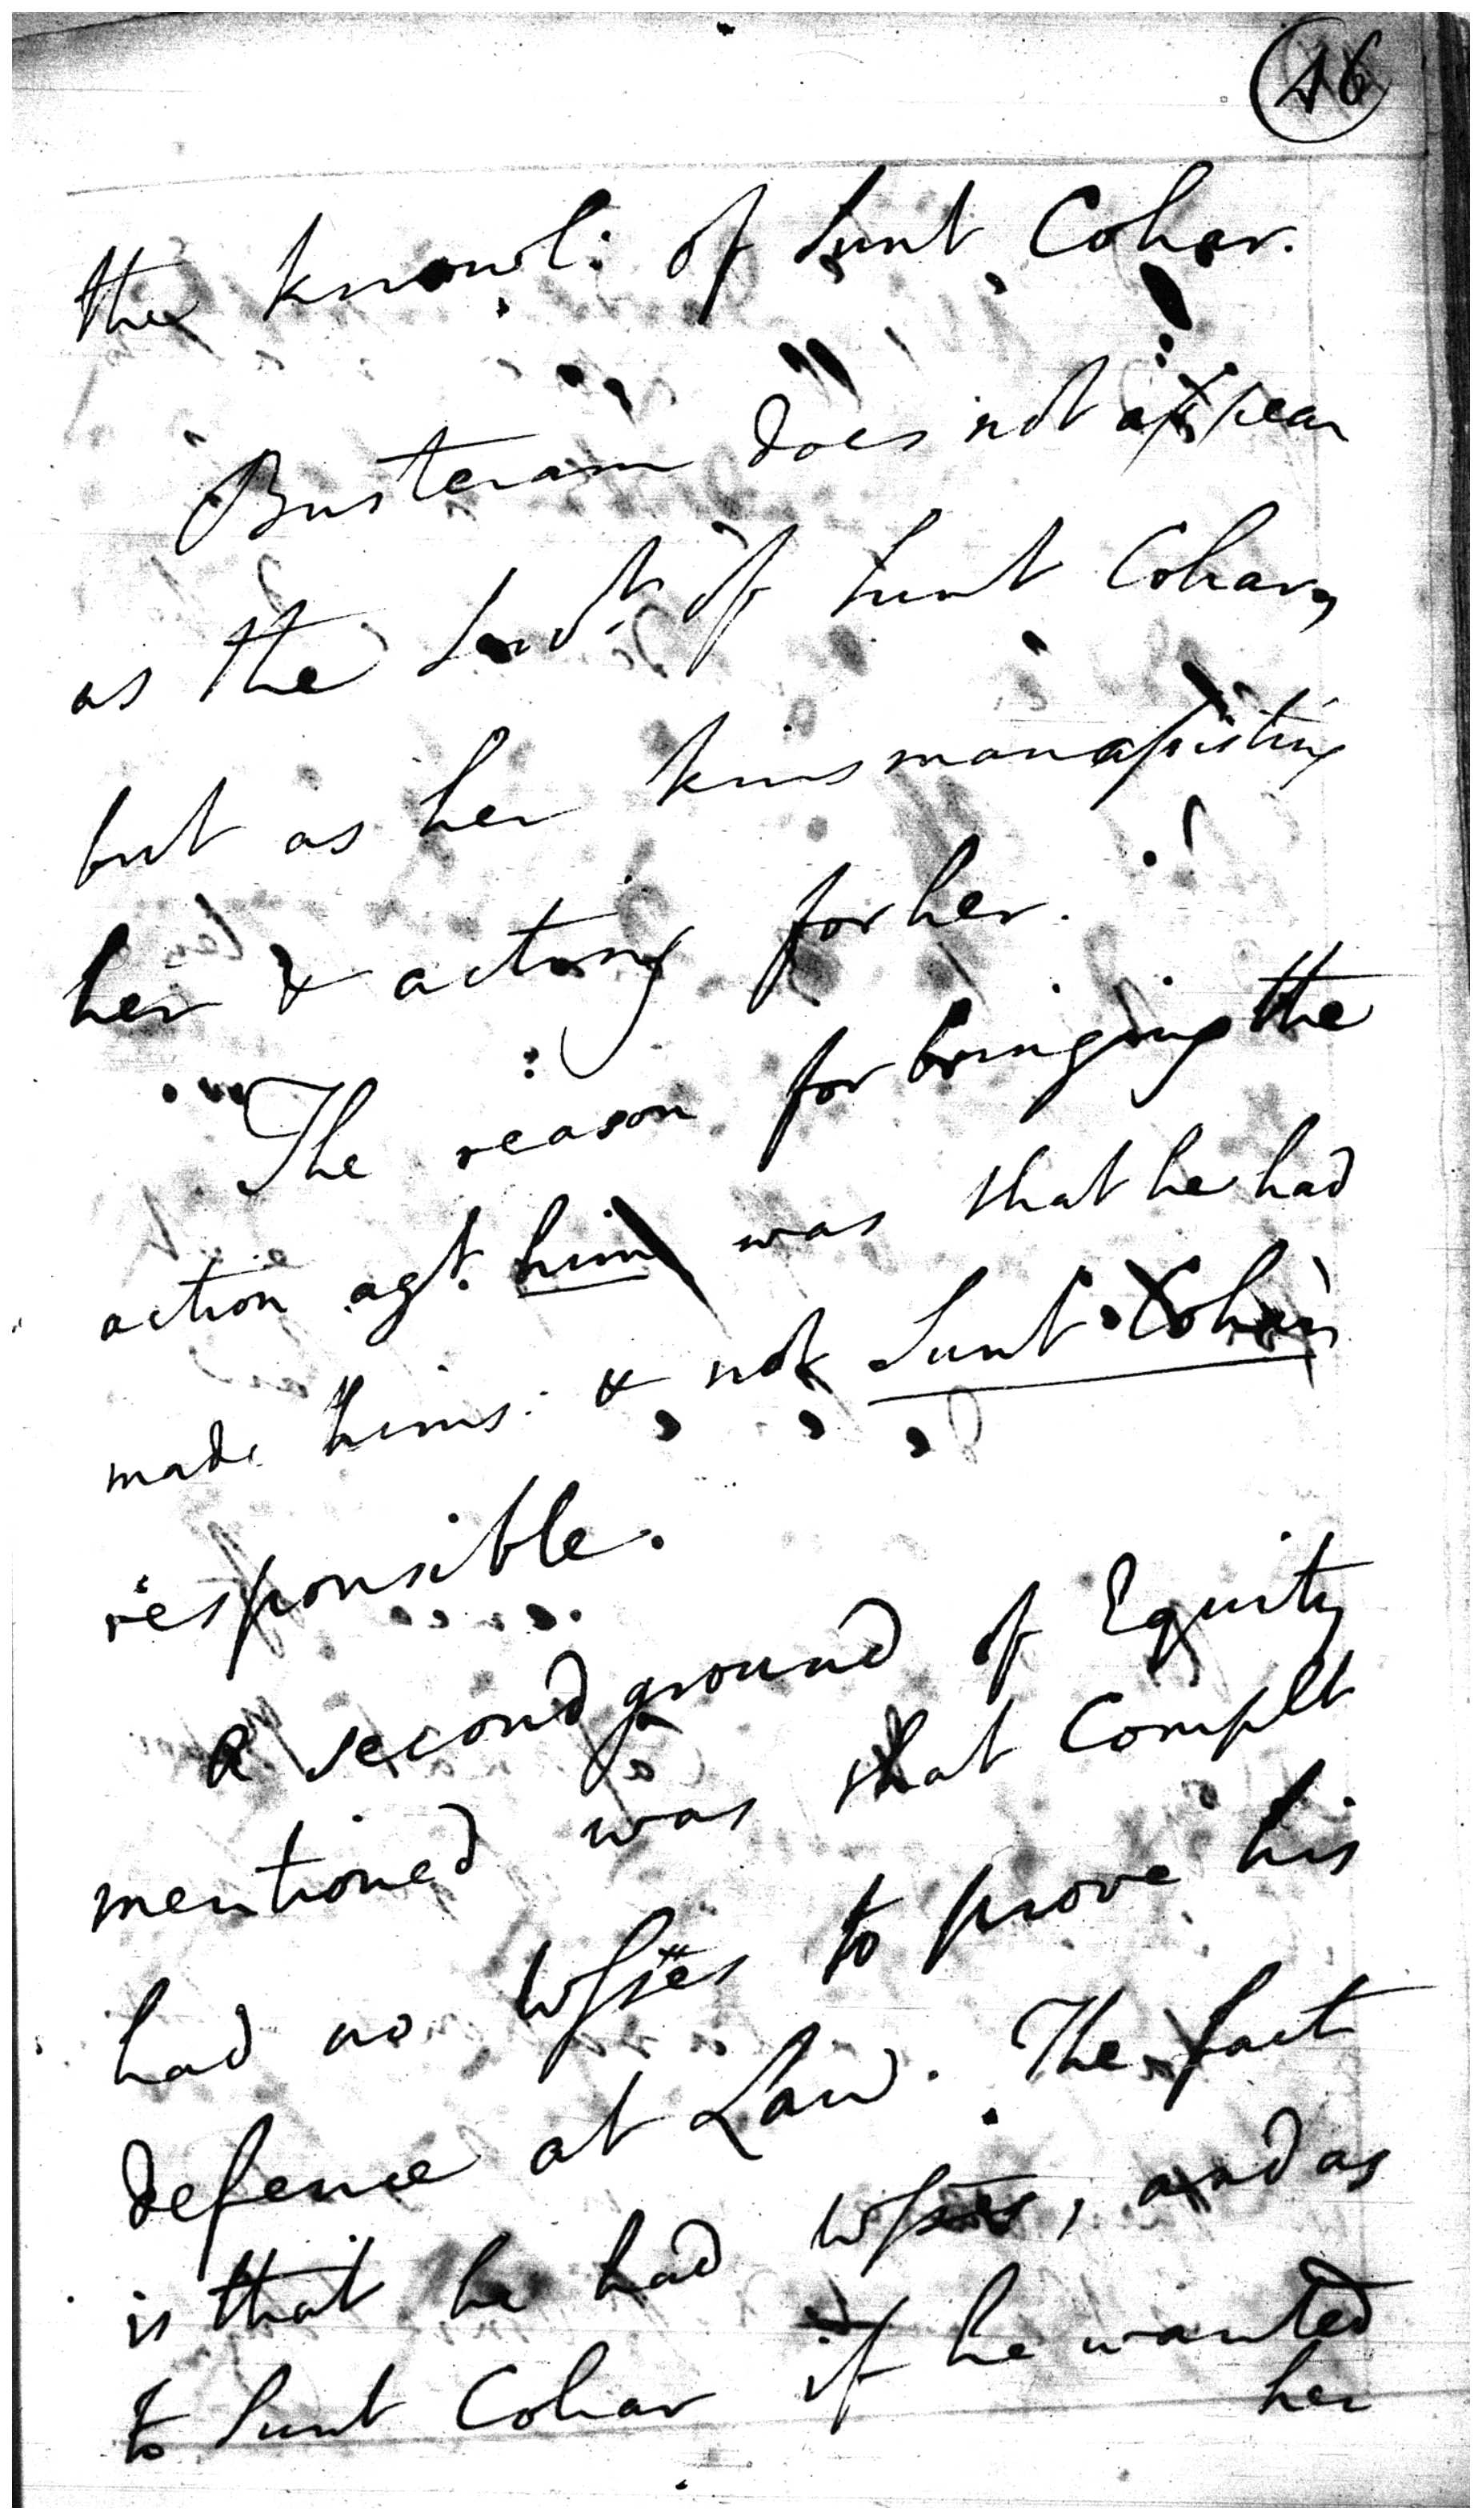 46
the knowl: of Sunt Cohar.
Busteram does not appear
as the Servt. of Sunt Cohar,
but as her kinsman assisting
her & acting for her.
The reason for bringing the
action agt. him was that he had
made hims: & not Sunt Cohar
responsible.
A second ground of Equity
mentioned was that Complt
had no Wsses to prove his
defence at Law. The fact
is that he had Wsses, and as
to Sunt Cohar if he wanted
her